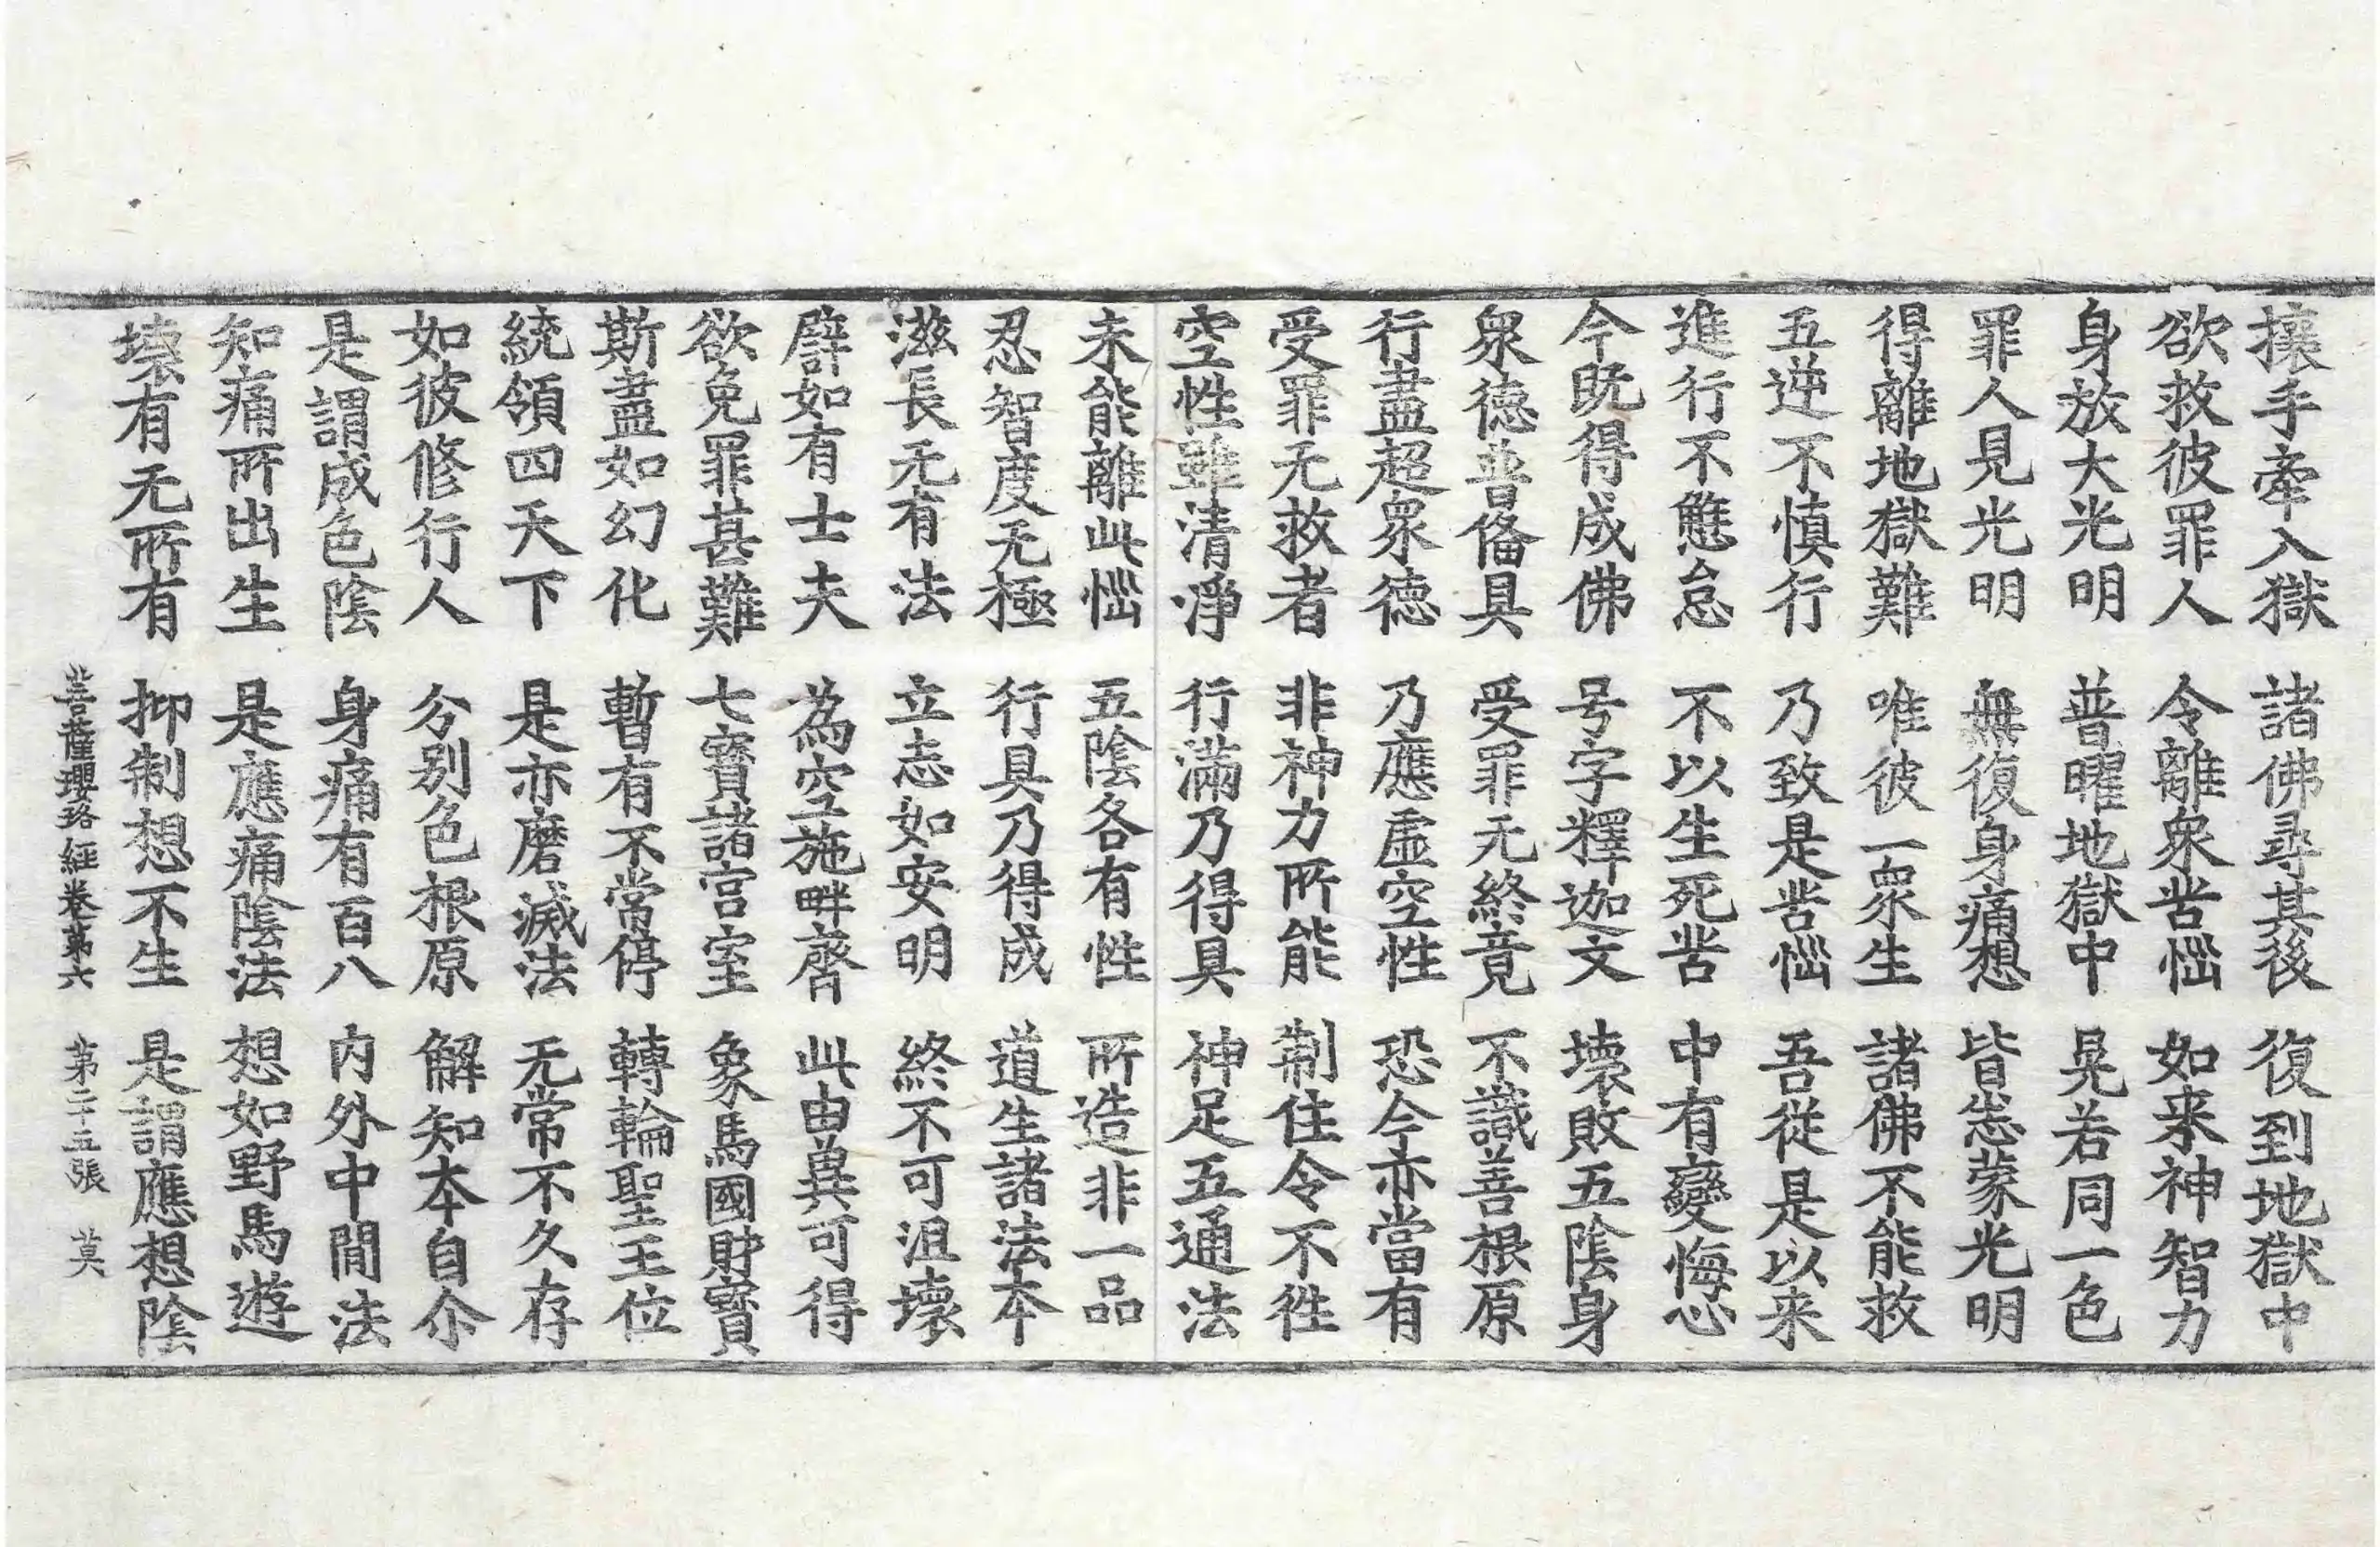 攘手牽入獄 諸佛尋其後 復到地獄中
欲救彼罪人 令離衆苦惱 如来神智力
身放大光明 普曜地獄中 晃若同一色
罪人見光明 無復身痛想 皆悉蒙光明
得離地獄難 唯彼一衆生 諸佛不能救
五逆不慎行 乃致是苦惱 吾從是以来
進行不懈怠 不以生死苦 中有變悔心
今旣得成佛 号字釋迦文 壞敗五陰身
衆徳普俻具 受罪无終竟 不識善根原
行盡超衆徳 乃應虛空性 恐今亦當有
受罪无救者 非神力所能 制住令不徃
空性雖清淨 行滿乃得具 神足五通法
未能離此惱 五陰各有性 所造非一品
忍智度无極 行具乃得成 道生諸法本
滋長无有法 立志如安明 終不可沮壞
譬如有士夫 為空施畔齊 此由異可得
欲免罪甚難 七寶諸宫室 象馬國財寶
斯盡如幻化 暫有不常停 轉輪聖王位
統領四天下 是亦磨滅法 无常不久存
如彼修行人 分别色根原 解知本自尒
是謂成色陰 身痛有百八 内外中間法
知痛所出生 是應痛陰法 想如野馬遊
壞有无所有 抑制想不生 是謂應想陰
菩薩瓔珞經卷第六 第二十五張 莫